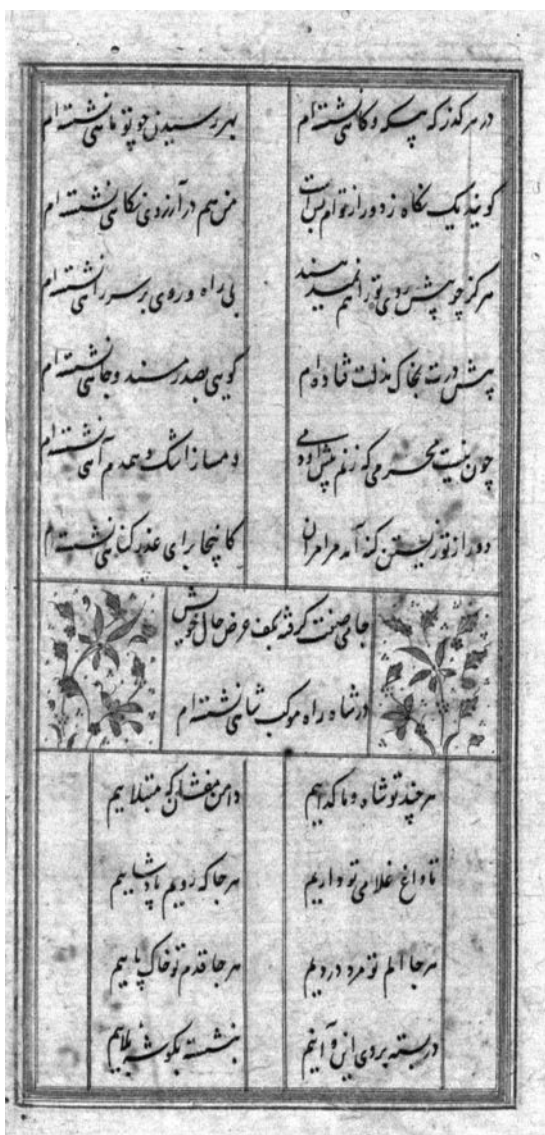 در هر گذر که بیگه و گاهی نشسته ام بهر رسیدن چو تو ماهی نشسته ام
گویند یک نگاه ز دور از توام بس است من هم در آرزوی نگاهی نشسته ام
هرگز چو پیش روی تو راهم نمیدهند بی راه و روی بر سر راهی نشسته ام
پیش درت بخاک مذلت فتاده ام گویی بصدر مسند و جاهی نشسته ام
چون نیست محرمی که زنم پیش او دمی دمساز اشک و همدم آهی نشسته ام
دور از تو زیستن گنه آمد مرا مران کاینجا برای عذر گناهی نشسته ام
جامی صفت گرفته بکف عرض حال خویش
در شاه راه موکب شاهی نشسته ام
هر چند تو شاه و ما گداییم دامن مفشان که مبتلاییم
تا داغ غلامی تو داریم هر جا که رویم پادشاییم
هر جا الم تو مرد دردیم هر جا قدم تو خاک پاییم
در بسته بروی این و آنیم بنشسته بگوشه بلاییم